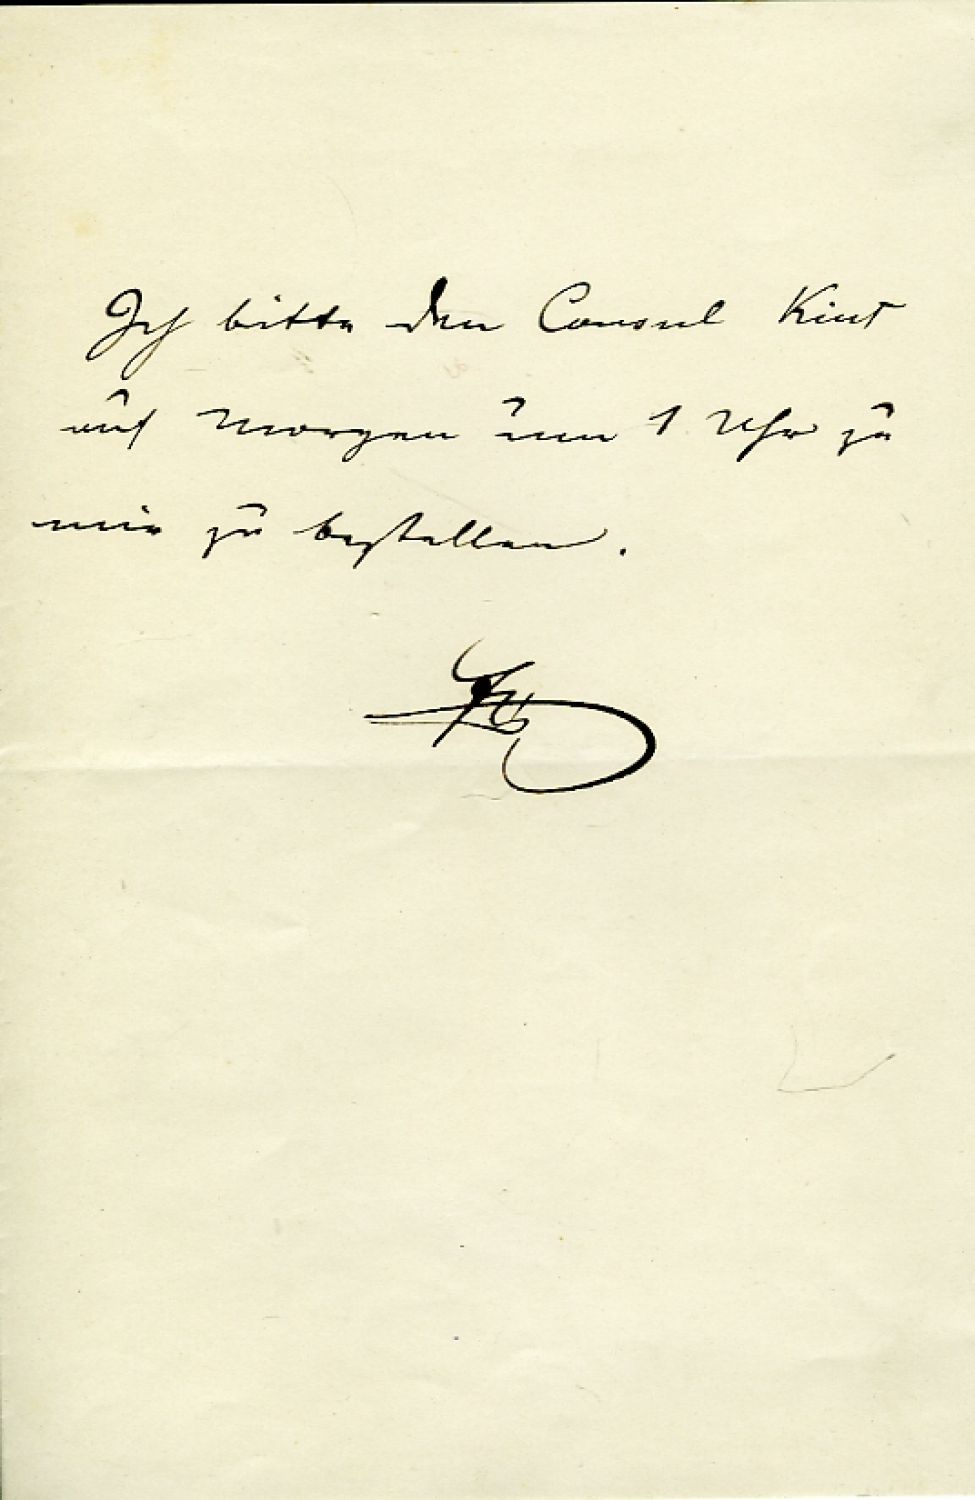 Ich bitte den Consul Kint
auf Morgen um 1 Uhr zu
mir zu bestellen.